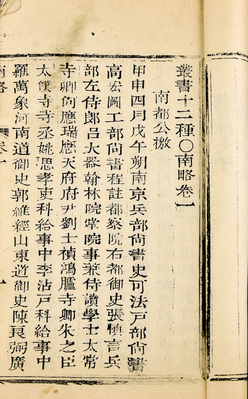 叢書十二種○南略卷一
南都公檄
甲申四月戊午朔南京兵部尚書史可法戶部尚書
高弘圖工部尚書程註都察院右都御史張慎言兵
部右侍郎呂大器翰林院掌院事兼侍讀學士太常
寺卿何應瑞應天府府尹劉士禎鴻臚寺卿朱之臣
太僕寺寺丞姚思孝吏科給事中李沾戶科給事中
羅萬象河南道御史郭維經山東道御史陳良弼廣